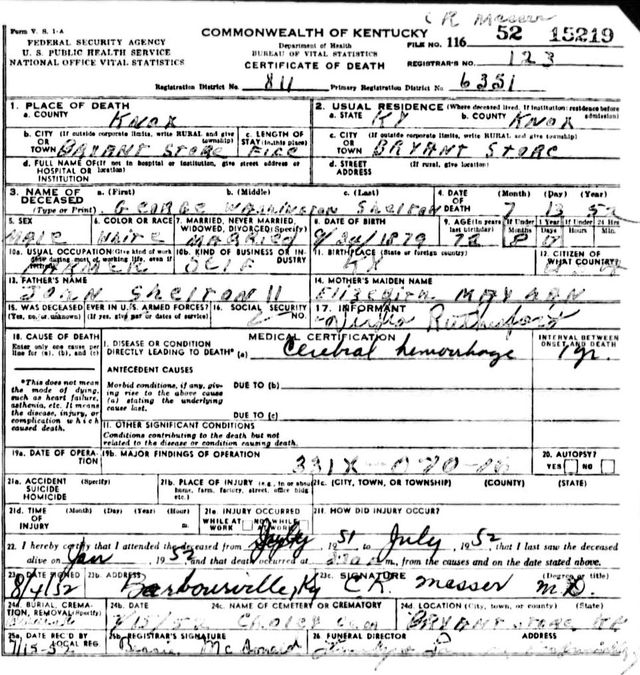 C R Masser
Form V. S. 1-A
FEDERAL SECURITY AGENCY
U. S. PUBLIC HEALTH SERVICE
NATIONAL OFFICE VITAL STATISTICS
COMMONWEALTH OF KENTUCKY
Department of Health
BUREAU OF VITAL STATISTICS
CERTIFICATE OF DEATH
FILE NO. 116 52 15219
REGISTRAR'S NO. 123
Registration District No. 811 Primary Registration District No. 6351
1. PLACE OF DEATH
a. COUNTY Knox
b. CITY (If outside corporate limits, write RURAL and give township) OR TOWN BRYANT STORE
c. LENGTH OF STAY (in this place)
d. FULL NAME OF (If not in hospital or institution, give street address or location) HOSPITAL OR INSTITUTION
2. USUAL RESIDENCE (Where deceased lived. If institution: residence before admission)
a. STATE KY b. COUNTY Knox
c. CITY (If outside corporate limits, write RURAL and give township) OR TOWN BRYANT STORE
d. STREET ADDRESS (If rural, give location)
3. NAME OF DECEASED (Type or Print) a. (First) b. (Middle) c. (Last)
GEORGE WASHINGTON Shelton
4. DATE OF DEATH (Month) (Day) (Year) 7 13 52
5. SEX MALE
6. COLOR OR RACE WHITE
7. MARRIED, NEVER MARRIED, WIDOWED, DIVORCED (Specify) MARRIED
8. DATE OF BIRTH
9. AGE (In years last birthday) 72 If Under 1 Year If Under 24 Hrs.
Months Days Hours Min.
10a. USUAL OCCUPATION (Give kind of work done during most of working life, even if retired) FARMER
10b. KIND OF BUSINESS OR INDUSTRY SELF
11. BIRTHPLACE (State or foreign country) KY
12. CITIZEN OF WHAT COUNTRY?
13. FATHER'S NAME
JOHN Shelton
14. MOTHER'S MAIDEN NAME
Elizebith
15. WAS DECEASED EVER IN U.S. ARMED FORCES?
(Yes, no, or unknown) (If yes, give war or dates of service)
16. SOCIAL SECURITY NO.
17. INFORMANT
18. CAUSE OF DEATH
Enter only one cause per line for (a), (b), and (c)
*This does not mean the mode of dying, such as heart failure, asthenia, etc. It means the disease, injury, or complication which caused death.
MEDICAL CERTIFICATION
I. DISEASE OR CONDITION
DIRECTLY LEADING TO DEATH* (a) Cerebral hemorrhage
INTERVAL BETWEEN ONSET AND DEATH
1 yr
ANTECEDENT CAUSES
Morbid conditions, if any, giving rise to the above cause (a) stating the underlying cause last.
DUE TO (b)
DUE TO (c)
II. OTHER SIGNIFICANT CONDITIONS
Conditions contributing to the death but not related to the disease or condition causing death.
19a. DATE OF OPERATION
19b. MAJOR FINDINGS OF OPERATION
331X-070-
20. AUTOPSY?
YES NO
21a. ACCIDENT SUICIDE HOMICIDE (Specify)
21b. PLACE OF INJURY (e.g., in or about home, farm, factory, street, office bldg., etc.)
21c. (CITY, TOWN, OR TOWNSHIP) (COUNTY) (STATE)
21d. TIME OF INJURY (Month) (Day) (Year) (Hour) m.
21e. INJURY OCCURRED
WHILE AT WORK NOT WHILE AT WORK
21f. HOW DID INJURY OCCUR?
22. I hereby certify that I attended the deceased from July, 1951 to July, 1952 that I last saw the deceased
alive on Jan, 1952, and that death occurred at m., from the causes and on the date stated above.
23a. DATE SIGNED 8/4/52
23b. ADDRESS Barbourville, Ky
23c. SIGNATURE CR. Masser (Degree or title) M.D.
24a. BURIAL, CREMATION, REMOVAL (Specify)
24b. DATE
24c. NAME OF CEMETERY OR CREMATORY
24d. LOCATION (City, town, or county) (State)
BRYANT STORE KY
25a. DATE REC'D BY LOCAL REG.
25b. REGISTRAR'S SIGNATURE
McDonald
26. FUNERAL DIRECTOR ADDRESS